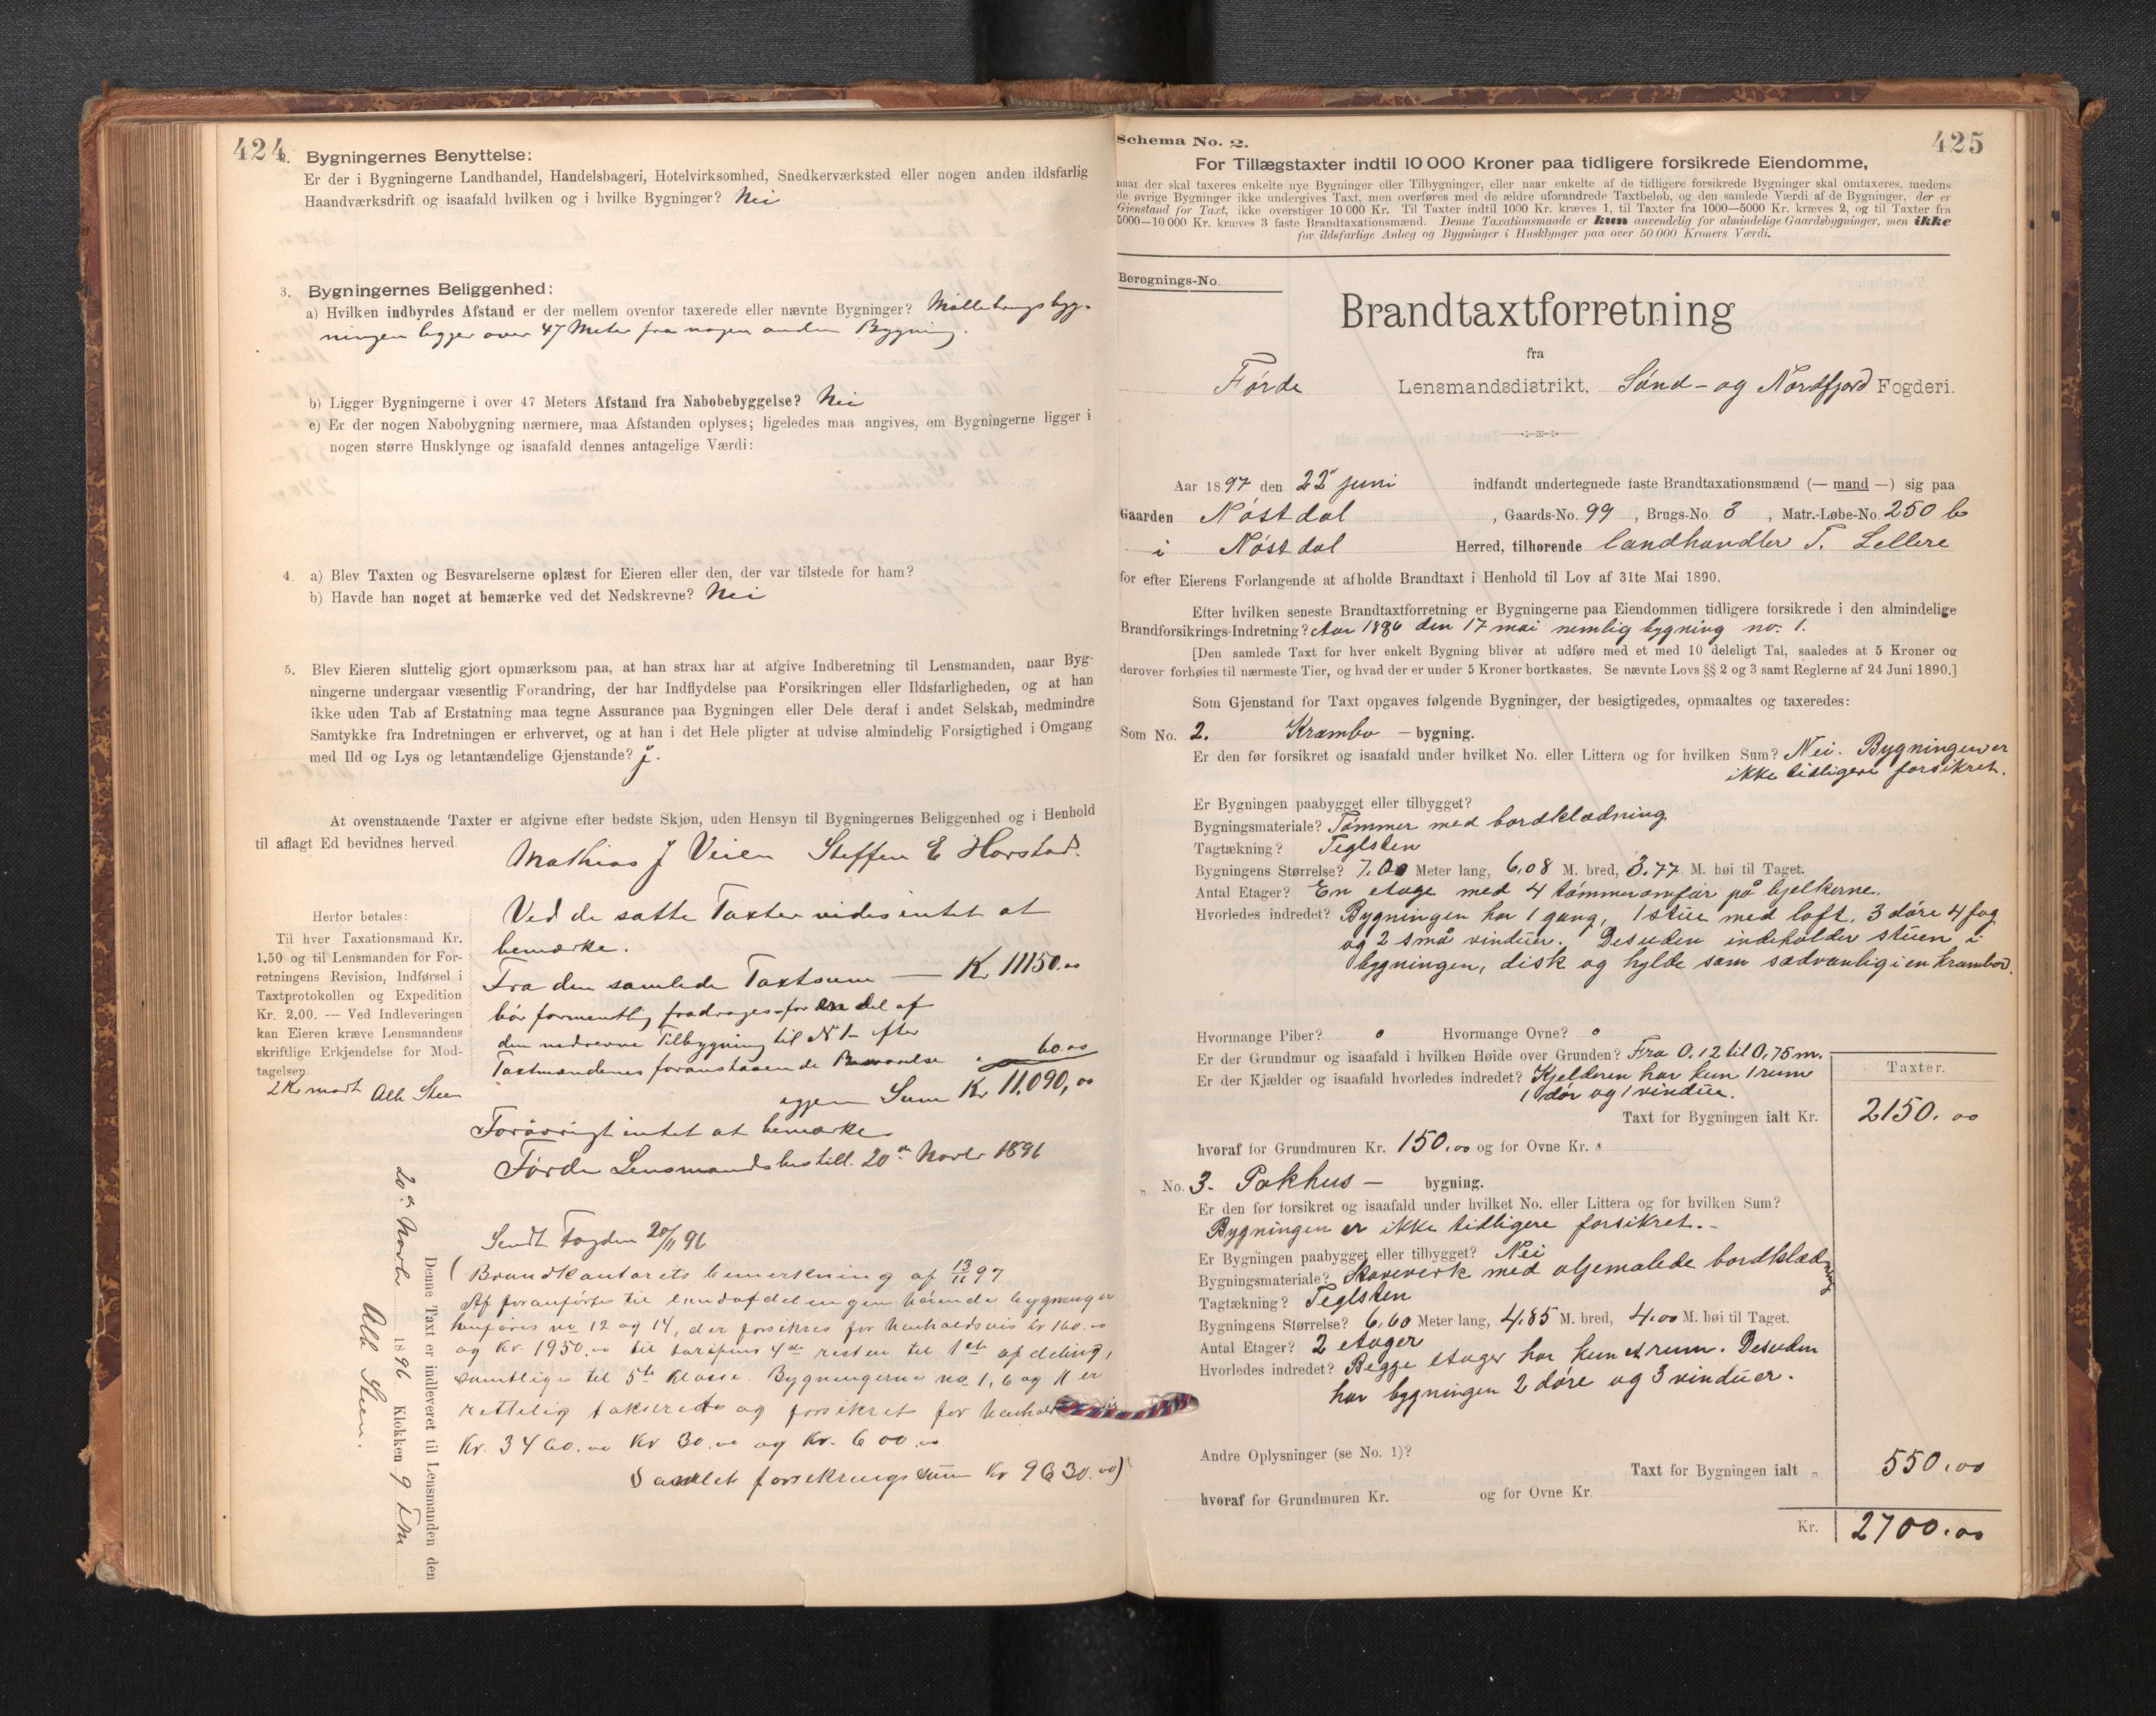 424
2. Bygningernes Benyttelse:
Er der i Bygningerne Landhandel, Handelsbageri, Hotelvirksomhed, Snedkerværksted eller nogen anden ildsfarlig
Haandværksdrift og isaafald hvilken og i hvilke Bygninger? Nei
3. Bygningernes Beliggenhed:
a) Hvilken indbyrdes Afstand er der mellem ovenfor taxerede eller nævnte Bygninger?
ningen ligger over 47 Meter fra nogen anden Bygning.
b) Ligger Bygningerne i over 47 Meters Afstand fra Nabobebyggelse? Nei
c) Er der nogen Nabobygning nærmere, maa Afstanden oplyses; ligeledes maa angives, om Bygningerne ligger i
nogen større Husklynge og isaafald dennes antagelige Værdi:
4. a) Blev Taxten og Besvarelserne oplæst for Eieren eller den, der var tilstede for ham?
b) Havde han noget at bemærke ved det Nedskrevne? Nei
5. Blev Eieren sluttelig gjort opmærksom paa, at han strax har at afgive Indberetning til Lensmanden, naar Byg-
ningerne undergaar væsentlig Forandring, der har Indflydelse paa Forsikringen eller Ildsfarligheden, og at han
ikke uden Tab af Erstatning maa tegne Assurance paa Bygningen eller Dele deraf i andet Selskab, medmindre
Samtykke fra Indretningen er erhvervet, og at han i det Hele pligter at udvise almindelig Forsigtighed i Omgang
med Ild og Lys og letantændelige Gjenstande? j.
At ovenstaaende Taxter er afgivne efter bedste Skjøn, uden Hensyn til Bygningernes Beliggenhed og i Henhold
til aflagt Ed bevidnes herved.
Mathias J Veien Steffen E Horstad.
Herfor betales:
Til hver Taxationsmand Kr.
1.50 og til Lensmanden for For-
retningens Revision, Indførsel i
Taxtprotokollen og Expedition
Kr. 2,00. — Ved Indleveringen
kan Eieren kræve Lensmandens
skriftlige Erkjendelse for Mod-
tagelsen.
2 Kr modt Alb Steen
Ved de satte Taxter vides intet at
bemærke.
Fra den samlede Taxtsum — Kr 11150.00
bør formentlig fradrages for en del af
den nedrevne Tilbygning til N 1 efter
Taxtmændenes foranstaaende Besvarelse " 60.00
igjen Sum Kr 11.090,00
Forøvrigt intet at bemærke
Førde Lensmandsbestill. 20de Novbr 1896
Sendt Fogden 20/11 96
(Brandkontorets bemerkning af 13/11 97
Af foranførte til landafdelingen hørende bygninger
henføres no 12 og 14, der forsikres for henholdsvis kr 160.00
og kr. 1950.00 til tarifens 4de resten til 1ste afdeling,
samtlige til 5te klasse. Bygningerne no 1, 6 og 11 er
rettelig takseret og forsikret for henhold
Kr. 3460.00 Kr 30.00 og Kr. 600.00
Samlet forsikringssum kr 9630.00)
Denne Taxt er indleveret til Lensmanden den
20de Novbr 1896 Klokken 9 Em
Alb Steen.
425
Schema No. 2.
For Tillægstaxter indtil 10 000 Kroner paa tidligere forsikrede Eiendomme,
naar der skal taxeres enkelte nye Bygninger eller Tilbygninger, eller naar enkelte af de tidligere forsikrede Bygninger skal omtaxeres, medens
de øvrige Bygninger ikke undergives Taxt, men overføres med de ældre uforandrede Taxtbeløb, og den samlede Værdi af de Bygninger, der er
Gjenstand for Taxt, ikke overstiger 10 000 Kr. Til Taxter indtil 1000 Kr. kræves 1, til Taxter fra 1000—5000 Kr. kræves 2, og til Taxter fra
5000—10 000 Kr. kræves 3 faste Brandtaxationsmænd. Denne Taxationsmaade er kun anvendelig for almindelige Gaardsbygninger, men ikke
for ildsfarlige Anlæg og Bygninger i Husklynger paa over 50 000 Kroners Værdi.
Beregnings-No.
Brandtaxtforretning
fra
Førde Lensmandsdistrikt, Sønd- og Nordfjord Fogderi.
Aar 1897 den 22 juni indfandt undertegnede faste Brandtaxationsmænd (— mand —) sig paa
Gaarden Nøstdal, Gaards-No. 99, Brugs-No 3, Matr.-Løbe-No. 250 b
i Nøstdal Herred, tilhørende landhandler T. Lellere
for efter Eierens Forlangende at afholde Brandtaxt i Henhold til Lov af 31te Mai 1890.
Efter hvilken seneste Brandtaxtforretning er Bygningerne paa Eiendommen tidligere forsikrede i den almindelige
Brandforsikrings-Indretning? Aar 1886 den 17 mai nemlig bygning no. 1.
[Den samlede Taxt for hver enkelt Bygning bliver at udføre med et med 10 deleligt Tal, saaledes at 5 Kroner og
derover forhøies til nærmeste Tier, og hvad der er under 5 Kroner bortkastes. Se nævnte Lovs §§ 2 og 3 samt Reglerne af 24 Juni 1890.]
Som Gjenstand for Taxt opgaves følgende Bygninger, der besigtigedes, opmaaltes og taxeredes:
Som No. 2. Krambo — bygning.
Er den før forsikret og isaafald under hvilket No. eller Littera og for hvilken Sum? Nei. Bygningen er
ikke tidligere forsikret.
Er Bygningen paabygget eller tilbygget?
Bygningsmateriale? Tømmer med bordklædning
Tagtækning? Teglsten
Bygningens Størrelse? 7.00 Meter lang, 6,08 M. bred, 3.77 M. høi til Taget.
Antal Etager? En etage med 4 tømmeromfar på bjelkerne.
Hvorledes indredet? Bygningen har 1 gang, 1 stue med loft, 3 døre 4 fag
og 2 små vinduer. Desuden indeholder stuen i
bygningen, disk og hylde som sædvanlig i en krambod.
Hvormange Piber? 0 Hvormange Ovne? 0
Er der Grundmur og isaafald i hvilken Høide over Grunden? Fra 0.12 til 0,75 m.
Er der Kjælder og isaafald hvorledes indredet? Kjelderen har kun 1 rum
1 dør og 1 vindue.
Taxter.
Taxt for Bygningen ialt Kr. 2150.00
hvoraf for Grundmuren Kr. 150.00 og for Ovne Kr.
" No. 3. Pakhus — bygning.
Er den før forsikret og isaafald under hvilket No. eller Littera og for hvilken Sum?
Bygningen er ikke tidligere forsikret.-
Er Bygningen paabygget eller tilbygget? Nei
Bygningsmateriale? Staveverk med oljemalede bordklædning
Tagtækning? Teglsten
Bygningens Størrelse? 6,60 Meter lang, 4,85 M. bred, 4.00 M. høi til Taget.
Antal Etager? 2 etager
Hvorledes indredet? Begge etager har kun et rum. Desuden
har bygningen 2 døre og 3 vinduer.
Andre Oplysninger (se No. 1)?
Taxt for Bygningen ialt " 550.00
hvoraf for Grundmuren Kr. og for Ovne Kr.
Kr. 2700.00